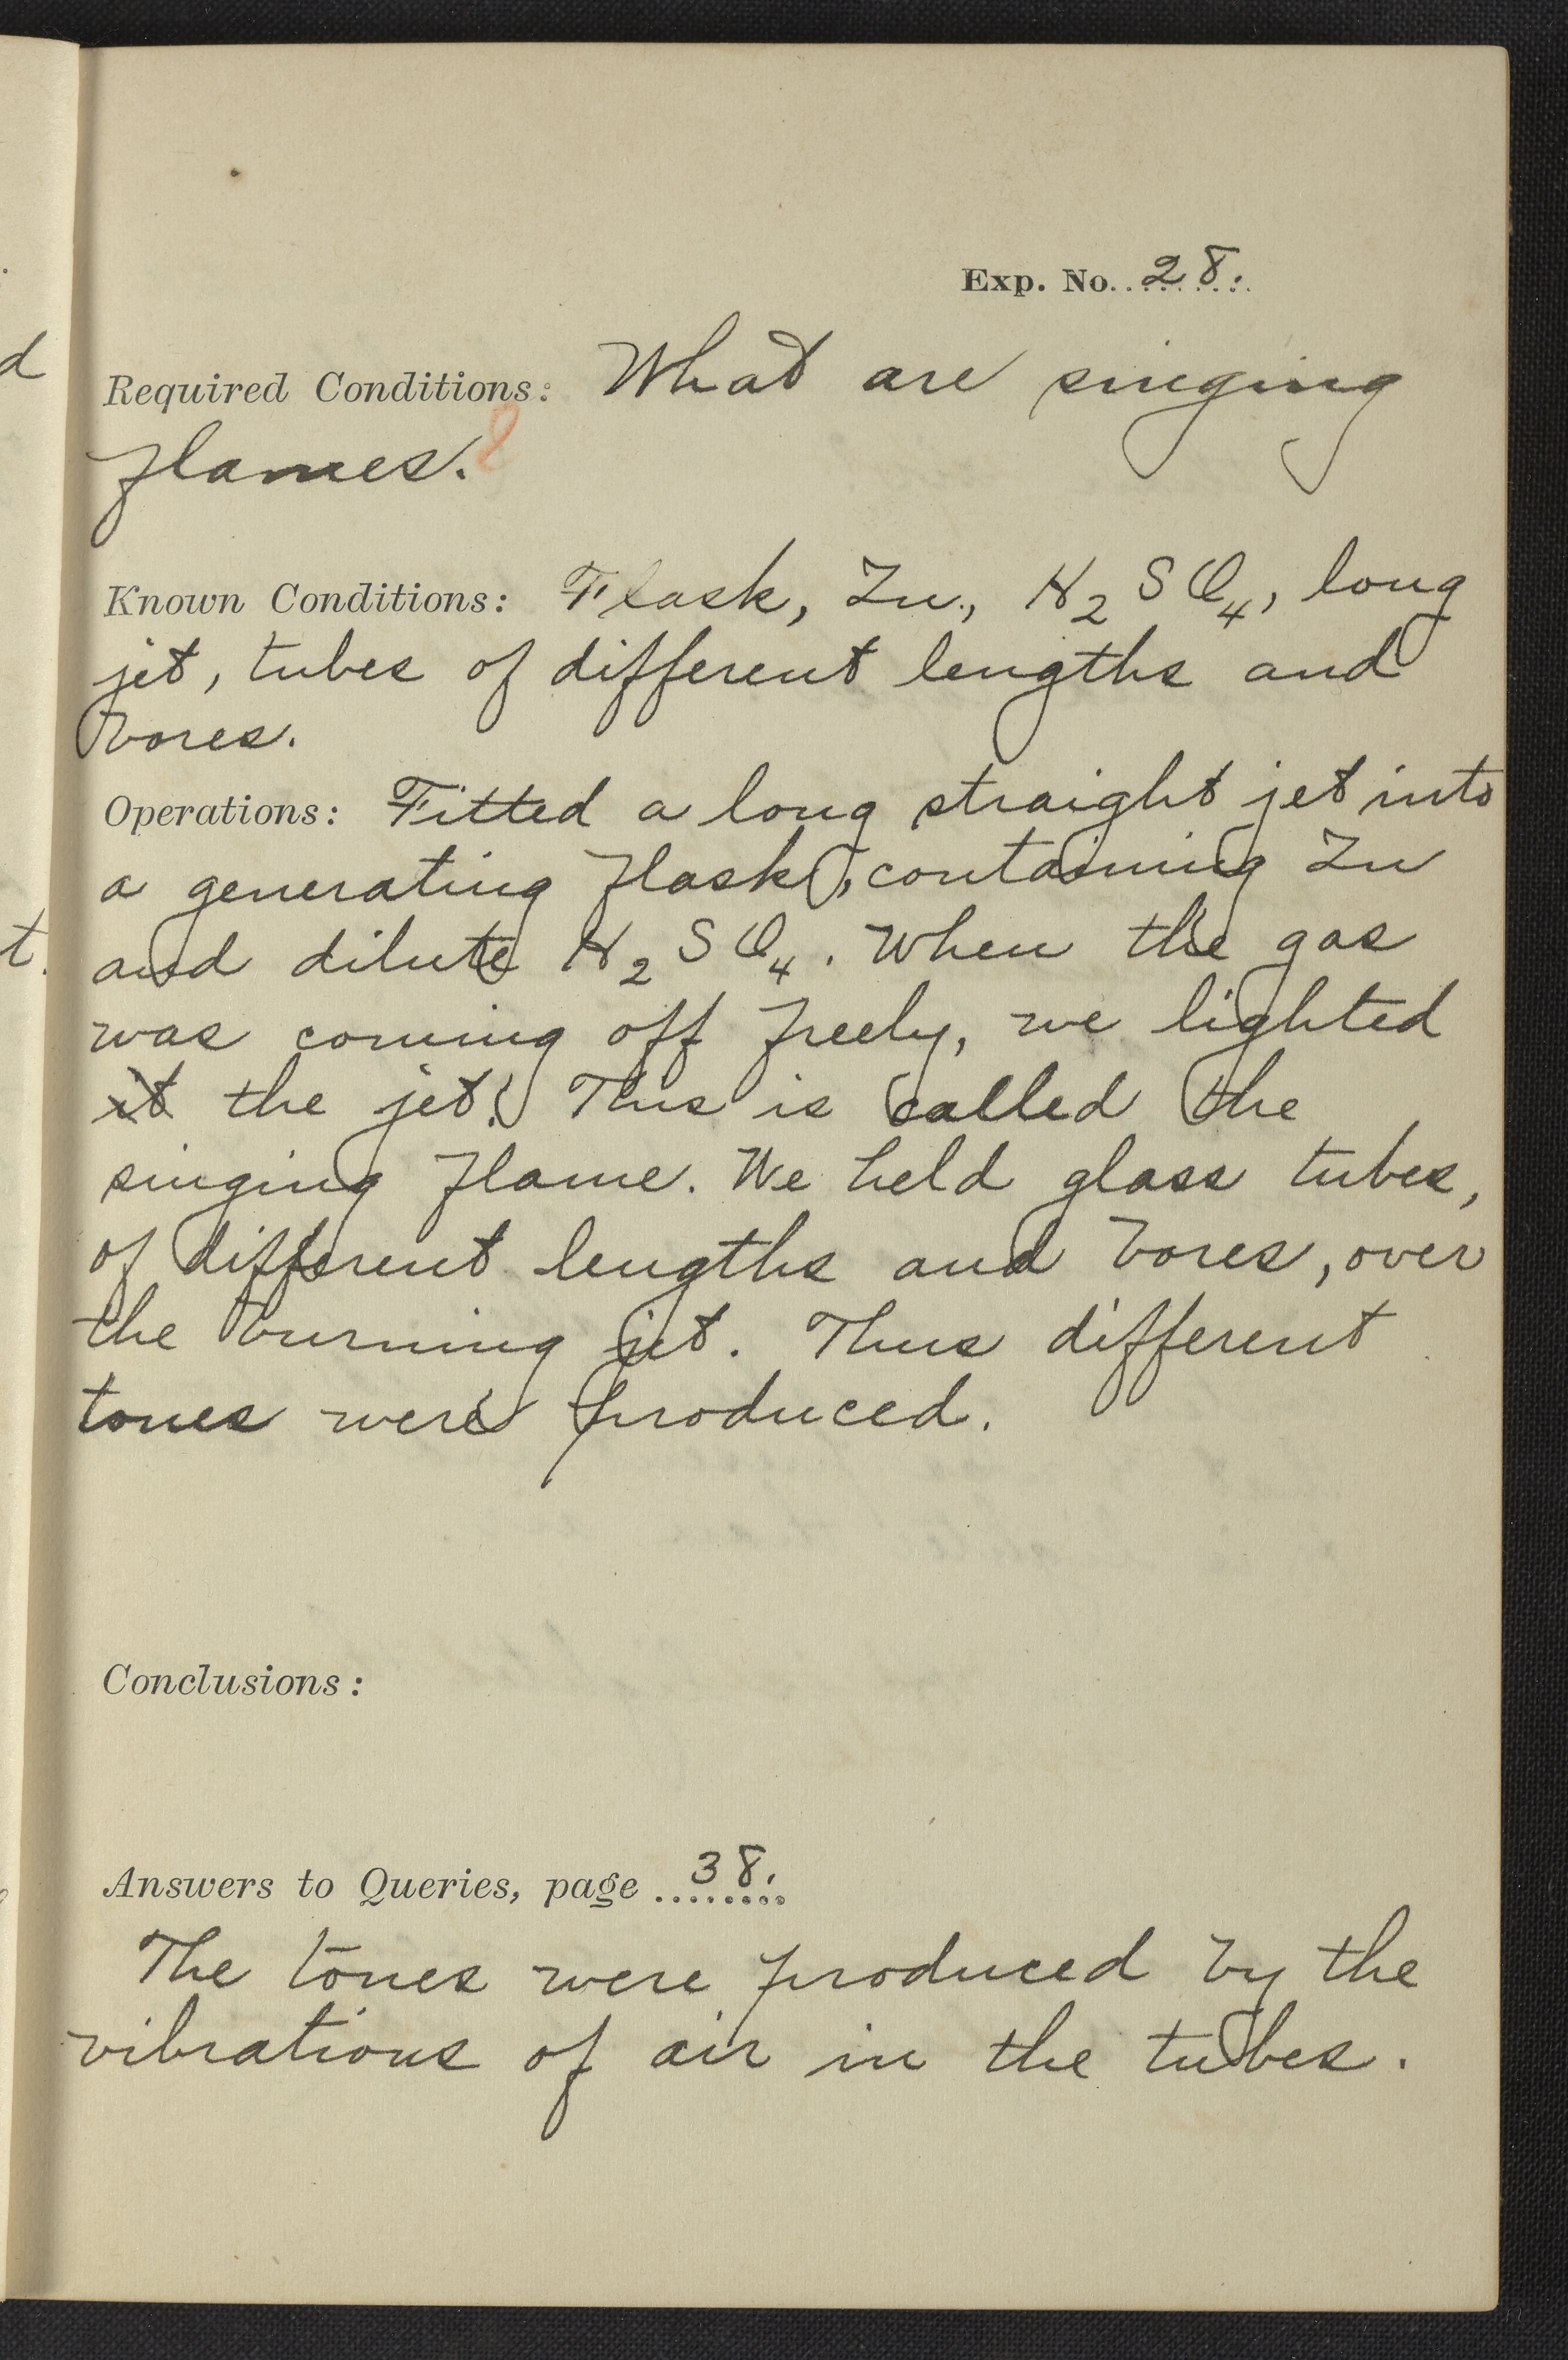 Exp. No. 28.
d
Required Conditions: What are singing
flames.?
Known Conditions: Flask, Zn., H2SO4, long
jet, tubes of different lengths and
bores.
Operations: Fitted a long straight jet into
a generating flask, containing Zn
and dilute H2SO4. When the gas
t.
was coming off freely, we lighted
it the jet. This is called the
singing flame. We held glass tubes,
of different lengths and bores, over
the burning jet. Thus different
tones were produced.
Conclusions:
Answers to Queries, page 38.
The tones were produced by the
vibrations of air in the tubes.